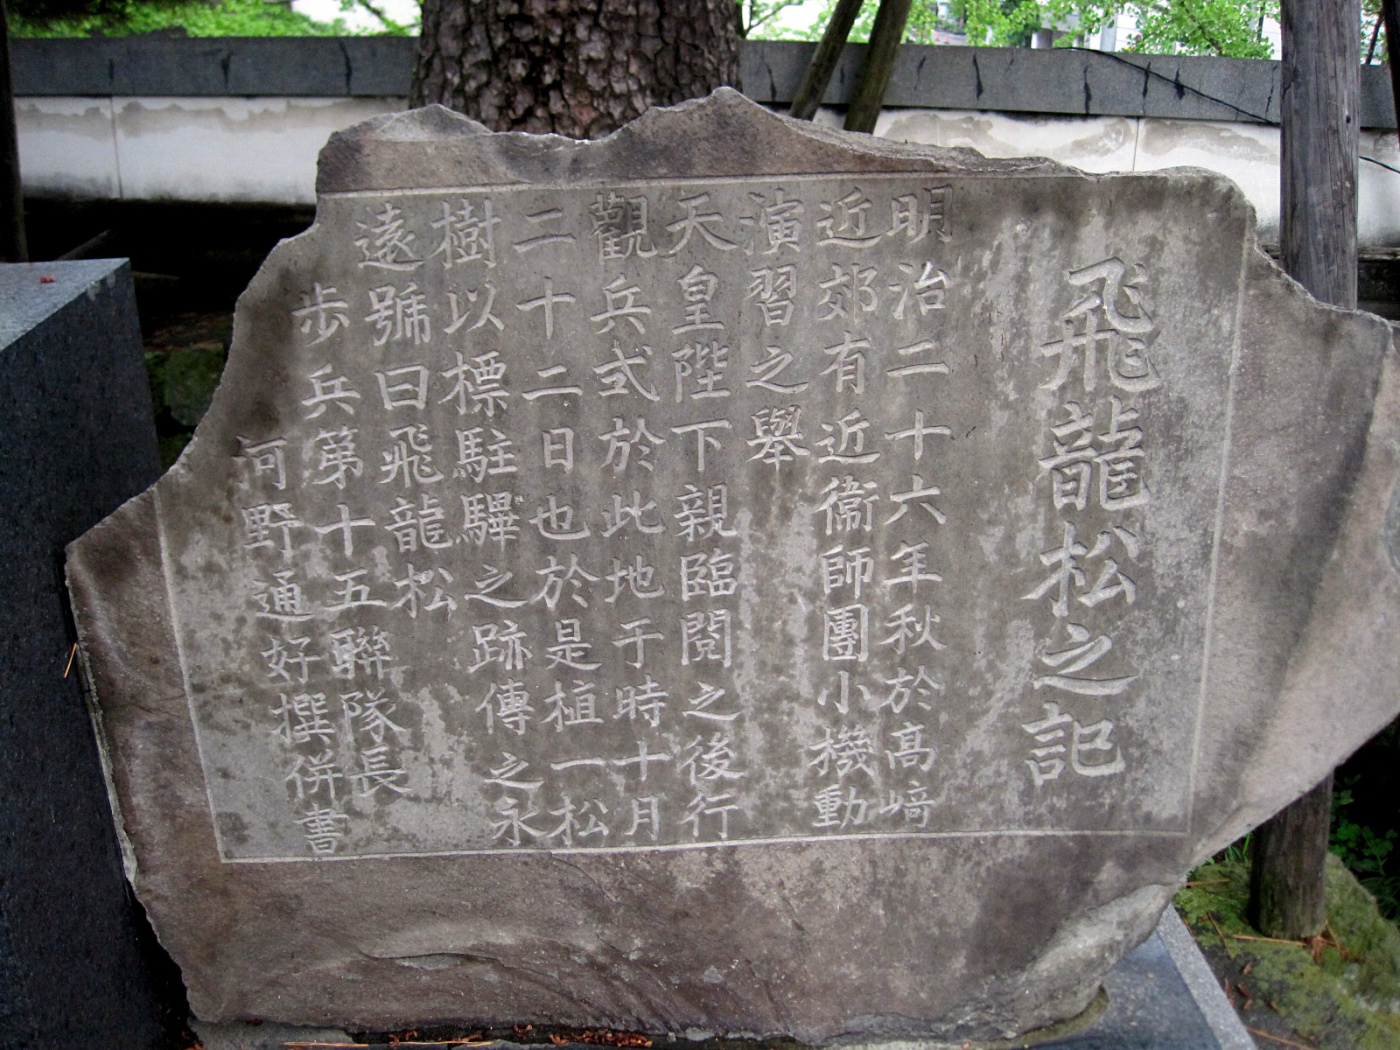 飛龍松之記
明治二十六年秋於高﨑
近郊有近衞師團小機動
演習之舉
天皇陛下親臨閲之後行
觀兵式於此地于時十月
二十二日也於是植一松
樹以標駐驆之跡傳之永
遠號曰飛龍松
步兵第十五聯隊長
河野通好撰併書